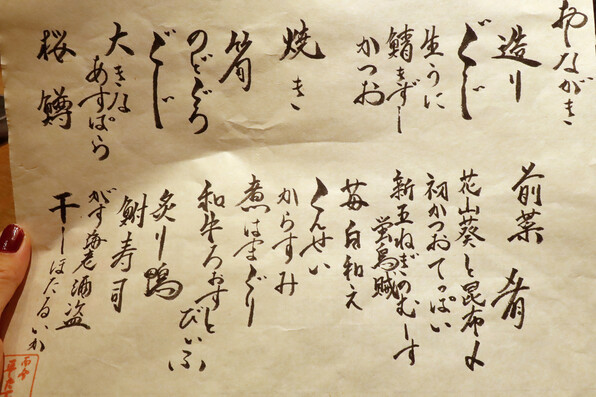 おしながき
造り
ぐじ
生うに
鯖きずし
かつお
焼き
筍
のどぐろ
ぐじ
大きな
あすぱら
桜鱒
前菜 肴
花山葵と昆布〆
初かつおてっぱい
新玉ねぎのむーす
蛍烏賊
苺白和え
くんせい
からすみ
煮はまぐり
和牛ろおすと
びいふ
炙り鴨
鮒寿司
がす海老酒盗
干しほたるいか